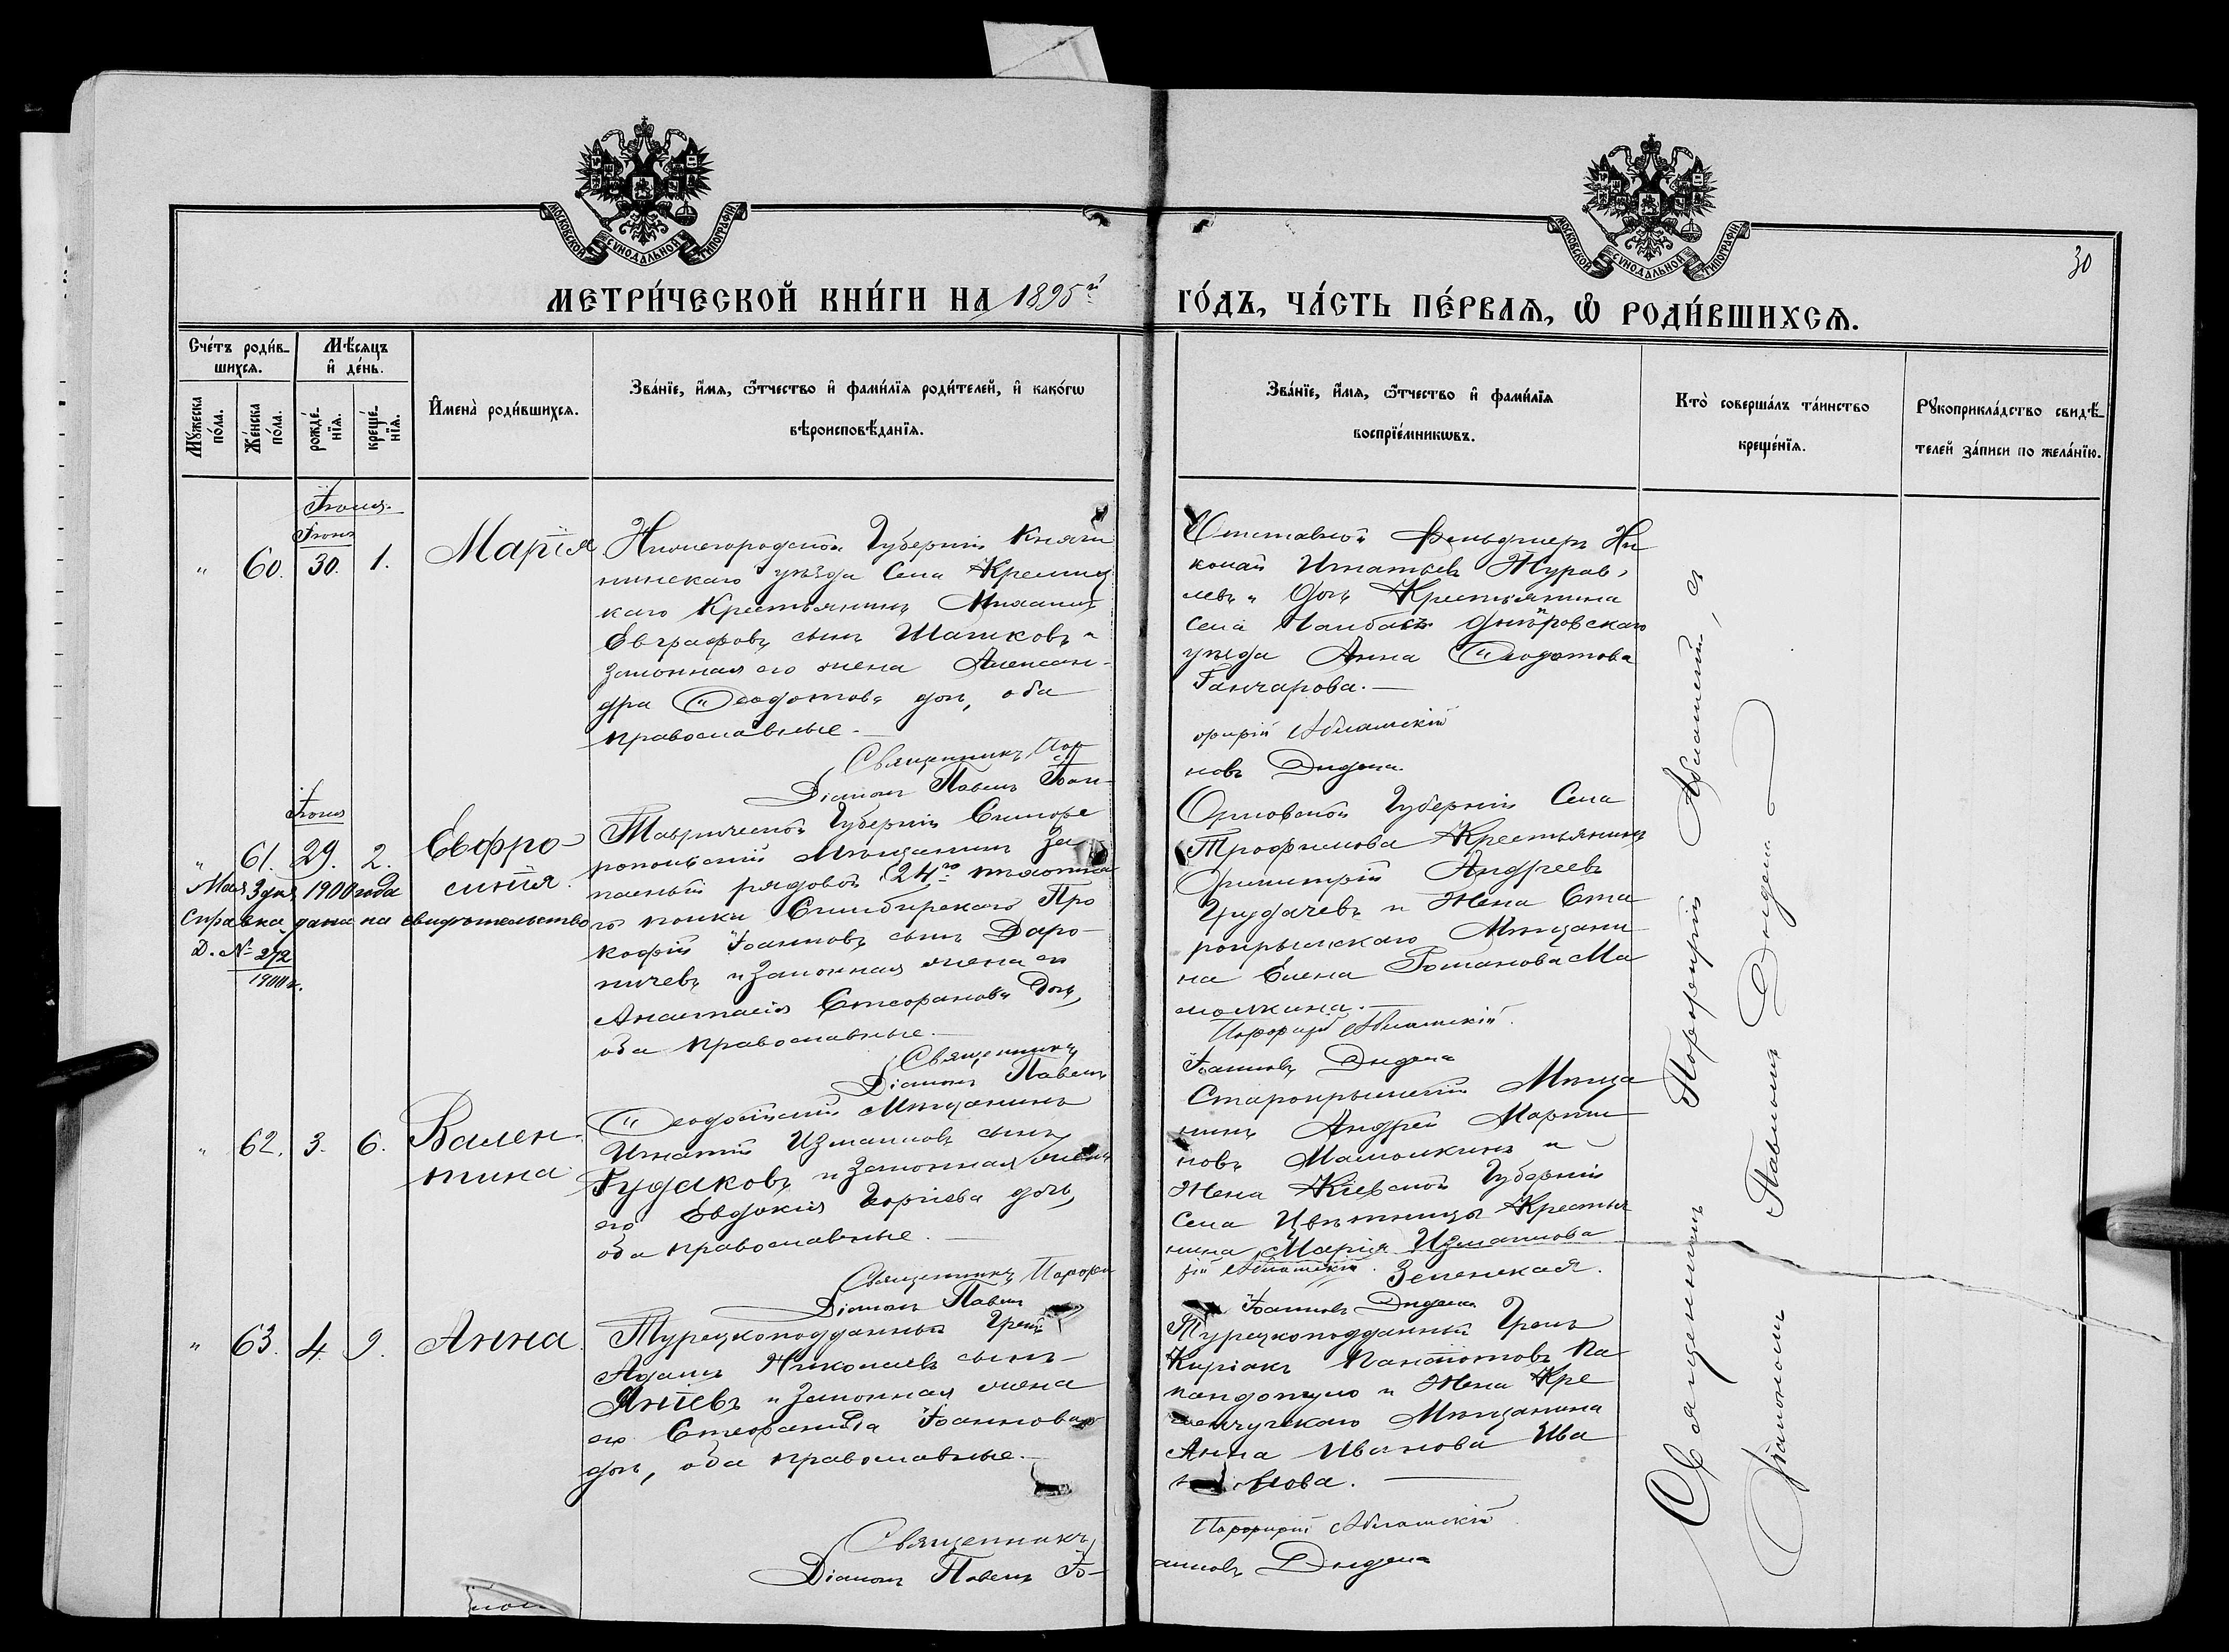 МОСКОВСКОЙ СѴНОДАЛЬНОЙ ТИПОГРАФІИ
МОСКОВСКОЙ СѴНОДАЛЬНОЙ ТИПОГРАФІИ
30
МЕТРИ́ЧЕСКОЙ КНИ́ГИ НА 1895й ГО́ДЪ, ЧА́СТЬ ПЕ́РВАѦ, Ѡ҆ РОДИ́ВШИХСѦ.
Сче́тъ роди́в-
шихсѧ.
Мѣ́сѧцъ
и҆ де́нь.
Мꙋ́жеска
по́ла.
Же́нска
по́ла.
рожде́-
нїѧ.
креще́-
нїѧ.
И҆мена̀ роди́вшихсѧ.
Зва́нїе, и҆́мѧ, ѻ҆́тчество и҆ фами́лїѧ роди́телей, и҆ како́гѡ
вѣроисповѣ́данїѧ.
Зва́нїе, и҆́мѧ, ѻ҆́тчество и҆ фами́лїѧ
воспрїе́мникѡвъ.
Кто̀ соверша́лъ та́инство
креще́нїѧ.
Рꙋкоприкла́дство свидѣ́-
телей за́писи по жела́нїю.
Іюля.
Іюня
" 60. 30. 1. Марія
Нижегородской Губерніи Княги
нинскаго уѣзда Села Кремниц
каго Крестьянинъ Михаилъ
Евграфовъ сынъ Шашковъ и
законная его жена Алексан-
дра Ѳеодотова дочь, оба
православные.
Священникъ Пор
Діаконъ Павелъ Іоан-
Отставной Фельдшеръ Ни
колай Игнатьевъ Журав-
левъ и дочь Крестьянина
Села Чалбасъ Днѣпровскаго
уѣзда Анна Ѳеодотова
Ганчарова.
фирій Аблашскій
новъ Дидена
Іюня
" 61. 29. 2. Евфро-
синія.
Мая 3 дня 1900 года
справка дана на свидѣтельство
Д. № 272
1900 г.
Таврической Губерніи Симфе
ропольскій Мѣщанинъ За
пасный рядовой 24го пѣхотна
го полка Симбирскаго Про
кофій Іоанновъ сынъ Даро-
ничевъ и законная жена его
Анастасія Стефанова дочь,
оба православные.
Священникъ
Діаконъ Павелъ
Орловской Губерніи Села
Трофимова Крестьянинъ
Димитрій Андреевъ
Грудачевъ и Жена Ста
рокрымскаго Мѣщани
на Елена Романова Ма
молкина.
Порфирій Аблашскій.
Іоанновъ Дидена
" 62. 3. 6. Вален-
тина
Ѳеодосійскій Мѣщанинъ
Игнатій Измаиловъ сынъ
Гудаковъ и законная жена
его Евдокія Георгіева дочь,
оба православные.
Священникъ Порфи
Діаконъ Павелъ
Старокрымскій Мѣща
нинъ Андрей Марти
новъ Мамолкинъ и
Жена Кіевской Губерніи
Села Цвѣтницы Крестья
нина Марія Измаилова
рій Аблашскій. Зеленская.
Іоанновъ Дидена
" 63. 4. 9. Анна.
Турецкоподданный Грекъ
Адамъ Николаевъ сынъ
Янієвъ и законная жена
его Стефанида Іоаннова
дочь, оба православные.
Священникъ
Діаконъ Павелъ Іо-
Турецкоподданный Грекъ
Киріакъ Панаіотовъ Па
пандопуло и Жена Кре
менчугскаго Мѣщанина
Анна Иванова Ива
нова.
Порфирій Аблашскій
анновъ Дидена
Священникъ Порфирій Аблашскій, съ
Діакономъ Павломъ Дидена